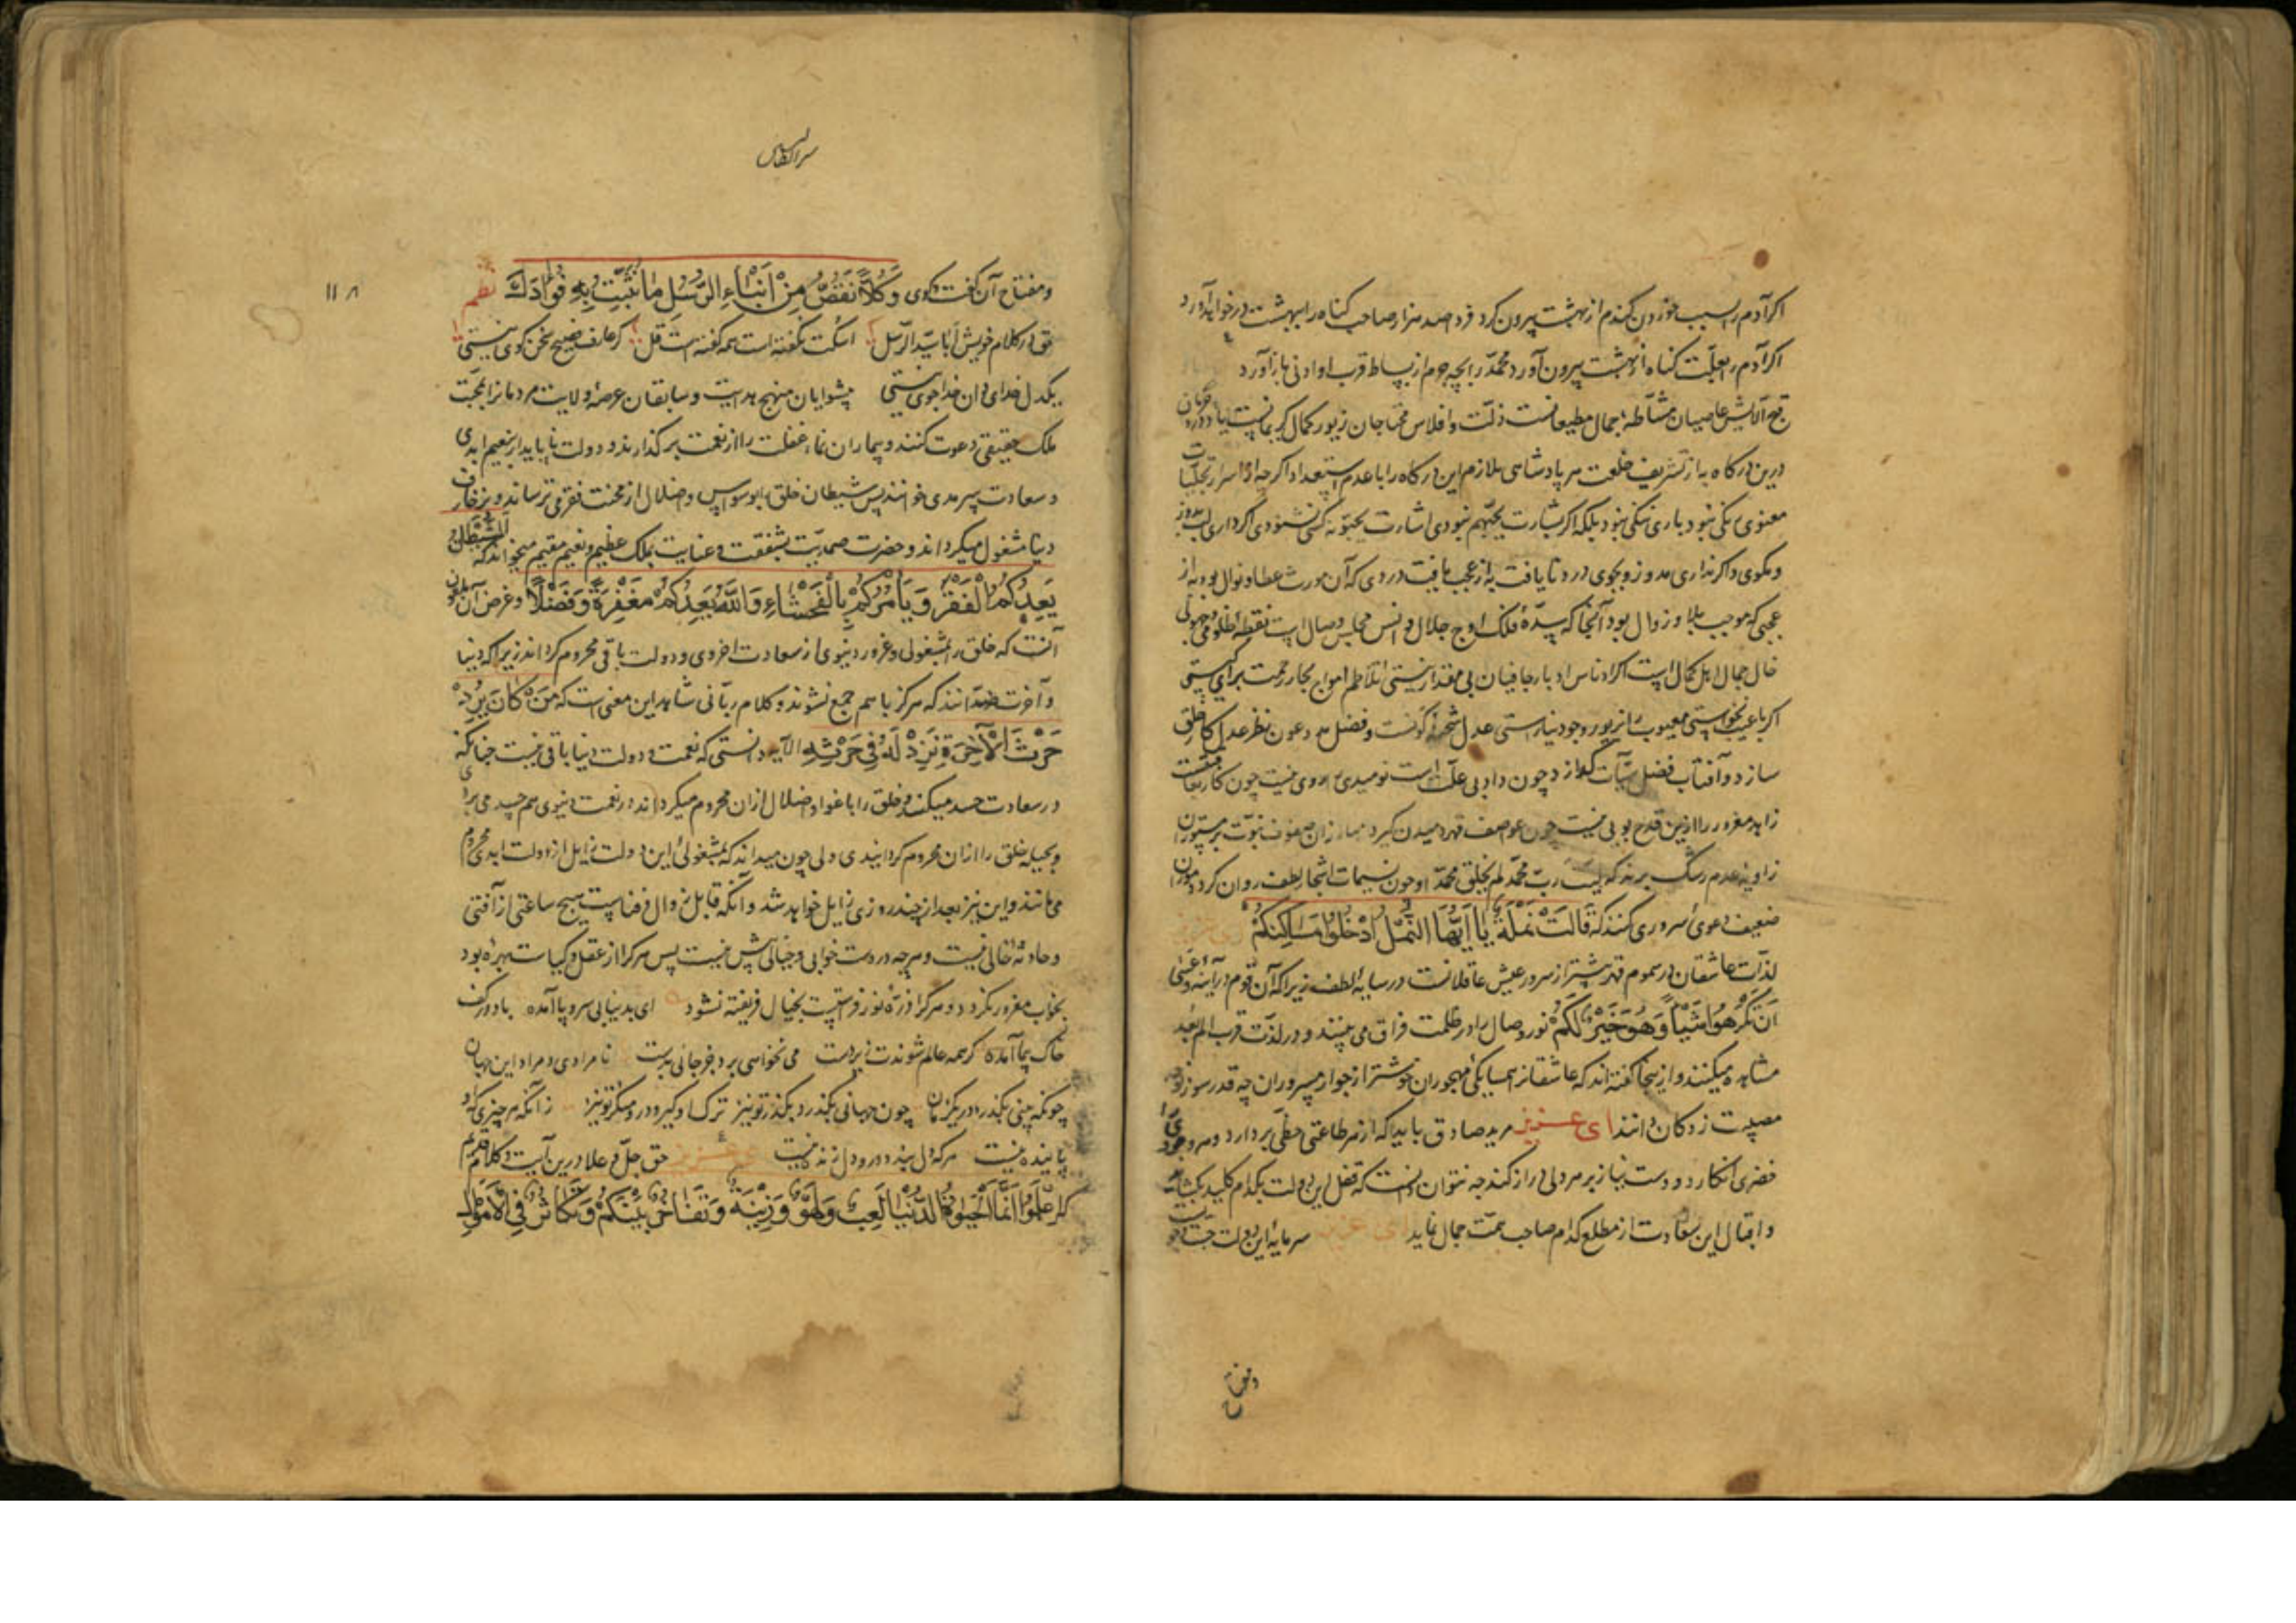 اکر آدم را بسبب خوردن کندم از بهشت بیرون کرد فردا صد هزار صاحب کناه را ببهشت درخواهد آورد
اکر آدم را بعلّت کناه از بهشت بیرون آورد محمّد را بچه جرم از بساط قرب او ادنی باز آورد
آلایش عاصیان مشّاطهٔ جمال مطیعانست ذلّت و افلاس محتاجان زیور کمال کریمانست
درین درکاه به از تشریف خلعت هر پادشاهی ملازم این درکاه را با عدم استعداد اکر چه از اسرار تجلّیات
معنوی نبود باری بود بلکه اکر بشارت یحبّهم نبودی اشارت یحبّونه کی شنودی اکر داری
و مکوی و اکر نداری و بجوی درد نایافت به از عجب یافت دردی که آن مورث عطا و نوال بود به از
عجبی که موجب بلا و زوال بود آنجا که سدّهٔ فلک اوج جلال و انس مجلس وصال است نقطهٔ ظلومی و جهولی
خال جمال اهل کمال است اکر ادناس ادبار جافیان بی مقدار نیستی تلاطم امواج بحار رحمت برای کیستی
اکر با عیب نخواستی معیوب را بزیور وجود نیاراستی عدل شحنهٔ کونست و فضل عون نظر عدل
سازد و آفتاب فضل سیّآت کدازد چون داد بی علّت است نومیدی روی نیست چون کار
زاهد مغرور را ازین قدح بویی نیست چون عواصف قهر بر مبارزان صفوف نبوّت
زاویهٔ عدم رشک برند که لیت ربّ محمّد لم یخلق محمّدا و چون نسیمات اشجار لطف روان کردد موران
ضعیف دعوی سروری کنند که قَالَتْ نَمْلَةٌ یَا اَیُّهَا النَّمْلُ ادْخُلُوا مَسَاکِنَکُمْ
لذّات عاشقان در سموم قهر بیشتر از سرور عیش عاقلانست در سایهٔ لطف زیرا که آن قوم در آینهٔ وعَسَی
اَنْ تَکْرَهُوا شَیْئًا وَهُوَ خَیْرٌ لَکُمْ نور وصال را در ظلمت فراق می بینند و در لذّت قرب الم بعد
مشاهده میکنند و ازینجا کفته اند که عاشقانرا همسایکی مهجوران خوشتر از جوار مسروران چه قدر سوز
مصیبت زدکان دانند ای عزیز مرید صادق باید که از هر طاعتی حظّی بردارد
خضری انکارد و دست نیاز بر هر دلی دراز کند چه نتوان دانست که قفل این دولت بکدام کلید بکشاید
و اقبال این سعادت از مطلع کدام صاحب همّت جمال نماید ای عزیز سرمایهٔ این دولت
سر الطالبین
۱۱۸
و مفتاح آن کفت و کوی وَکُلًّا نَقُصُّ عَلَیْکَ مِنْ اَنْبَاءِ الرُّسُلِ مَا نُثَبِّتُ بِهِ فُؤَادَکَ نظم
حق در کلام خویش ابا سیّد الرّسل اسکت نکفته است همه کفته است قل کر عارف فصیح سخن کوی نیستی
یکدل خدای دان خدا جوی نیستی پیشوایان منهج هدایت و سابقان عرصهٔ ولایت مردمانرا بمحبّت
ملک حقیقی دعوت کنند و بیماران غفلت را از نعمت برکذرنده و دولت ناپایدار بنعیم ابدی
و سعادت سرمدی خوانند پس شیطان خلق را بوسواس و ضلال از محنت فقر می ترساند و بزخارف
دنیا مشغول میکرداند و حضرت صمدیّت بشفقت و عنایت بملک عظیم و نعیم مقیم میخواند که الشَّیْطَانُ
یَعِدُکُمُ الْفَقْرَ وَیَأْمُرُکُمْ بِالْفَحْشَاءِ وَاللّٰهُ یَعِدُکُمْ مَغْفِرَةً وَفَضْلًا و غرض آن ملعون
آنست که خلق را بمشغولی و غرور دنیوی از سعادت اخروی و دولت باقی محروم کرداند زیرا که دنیا
و آخرت ضدّانند که هرکز باهم جمع نشوند و کلام ربّانی شاهد این معنی است که مَنْ کَانَ یُرِیدُ
حَرْثَ الْآخِرَةِ نَزِدْ لَهُ فِی حَرْثِهِ الآیه دانستی که نعمت و دولت دنیا باقی نیست چنانکه
در سعادت حسد میکند و خلق را باغوا و ضلال ازان محروم میکرداند در نعمت دنیوی هم حسد می برد
و بحیله خلق را ازان محروم کردانیدی ولی چون میداند که بمشغولیٔ این دولت زایل از دولت ابدی محروم
می مانند و این نیز بعد از چند روزی زایل خواهد شد و آنکه قابل زوال و فناست هیچ ساعتی از آفتی
و حادثهٔ خالی نیست و هرچه دروست خوابی و خیالی بیش نیست پس هرکرا از عقل و کیاست بهره بود
بخواب مغرور نکردد و هرکرا ذرّهٔ نور فراست است بخیال فریفته نشود ای بدنیا بی سر و پا آمده باد در کف
خاک پیما آمده کر همه عالم شوندت زیردست می نخواهی برد جز جانی بدست نامرادی و مراد این جهان
چونکه چینی بکذرد در یکزمان چون جهانی بکذرد بکذر تو نیز ترک او کیر و درو منکر تو نیز زانکه هر چیزی که او
پاینده نیست هرکه دل بندد درو دل زنده نیست ای عزیز حق جلّ و علا درین آیت و کلام قدیم
که اعْلَمُوا اَنَّمَا الْحَیٰوةُ الدُّنْیَا لَعِبٌ وَلَهْوٌ وَزِینَةٌ وَتَفَاخُرٌ بَیْنَکُمْ وَتَکَاثُرٌ فِی الْاَمْوَالِ